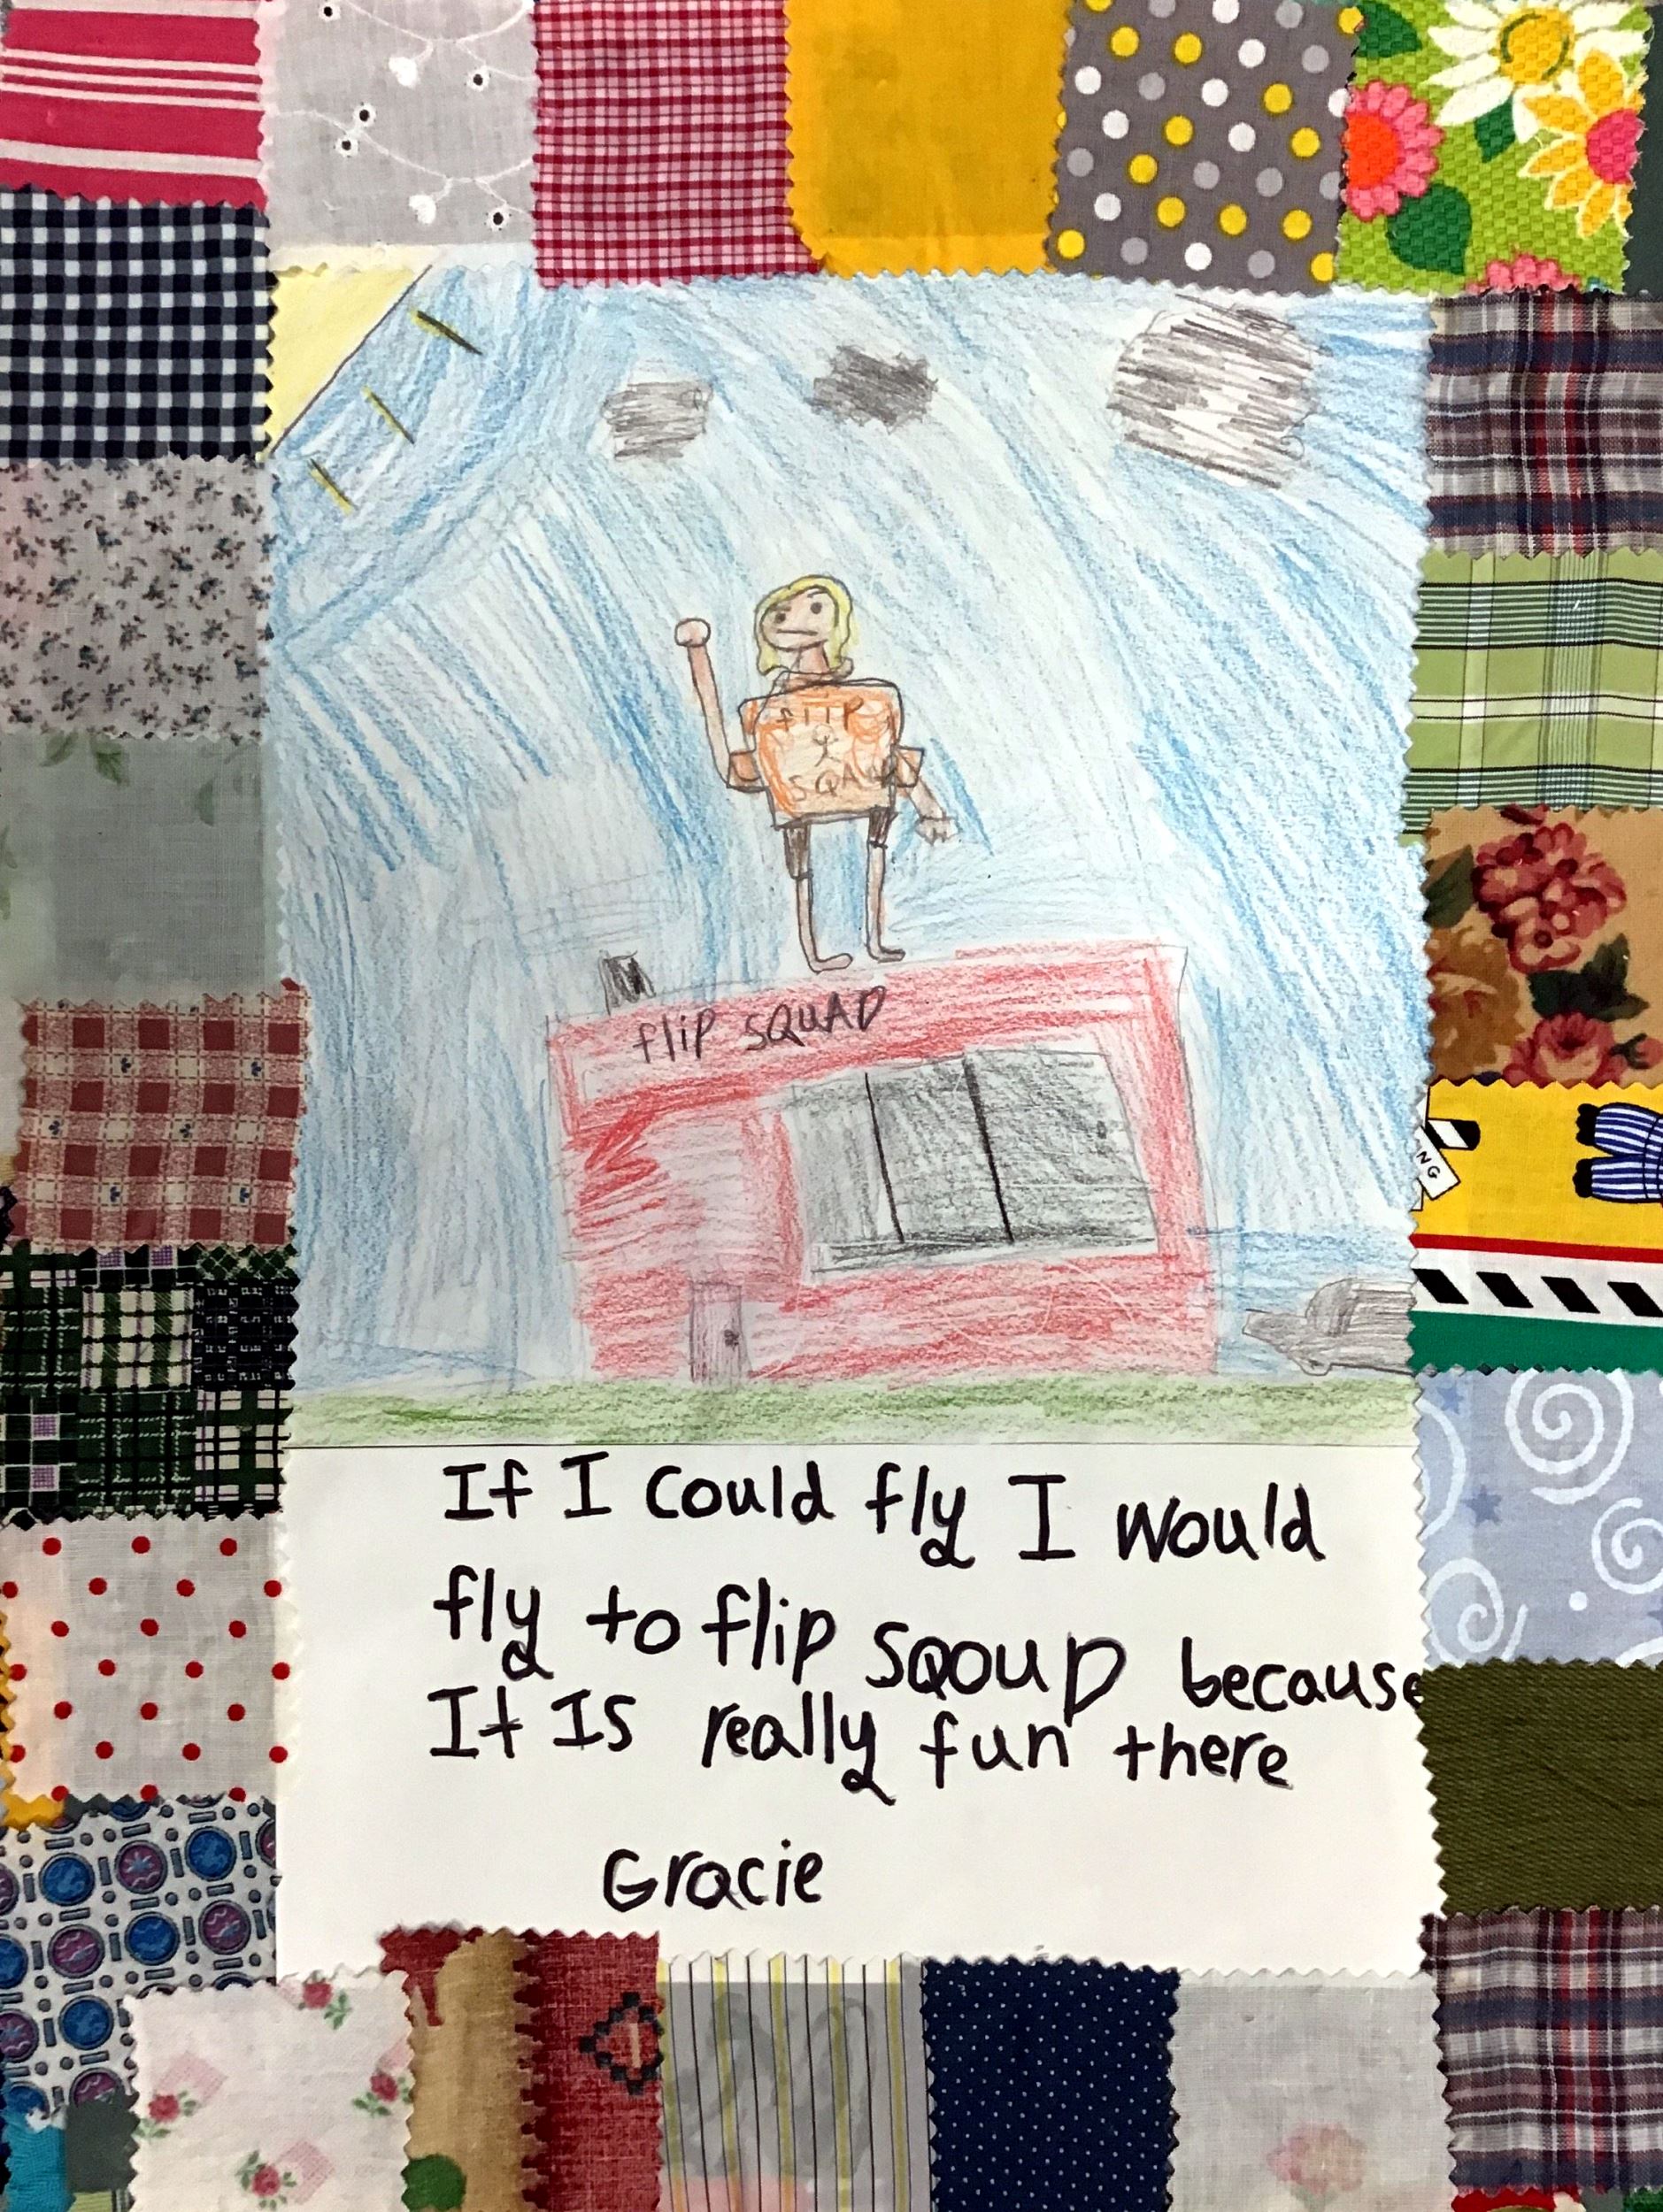 flip
SQAD
flip SQUAD
NG
If I could fly I would
fly to flip sqoup because
It Is really fun there
Gracie